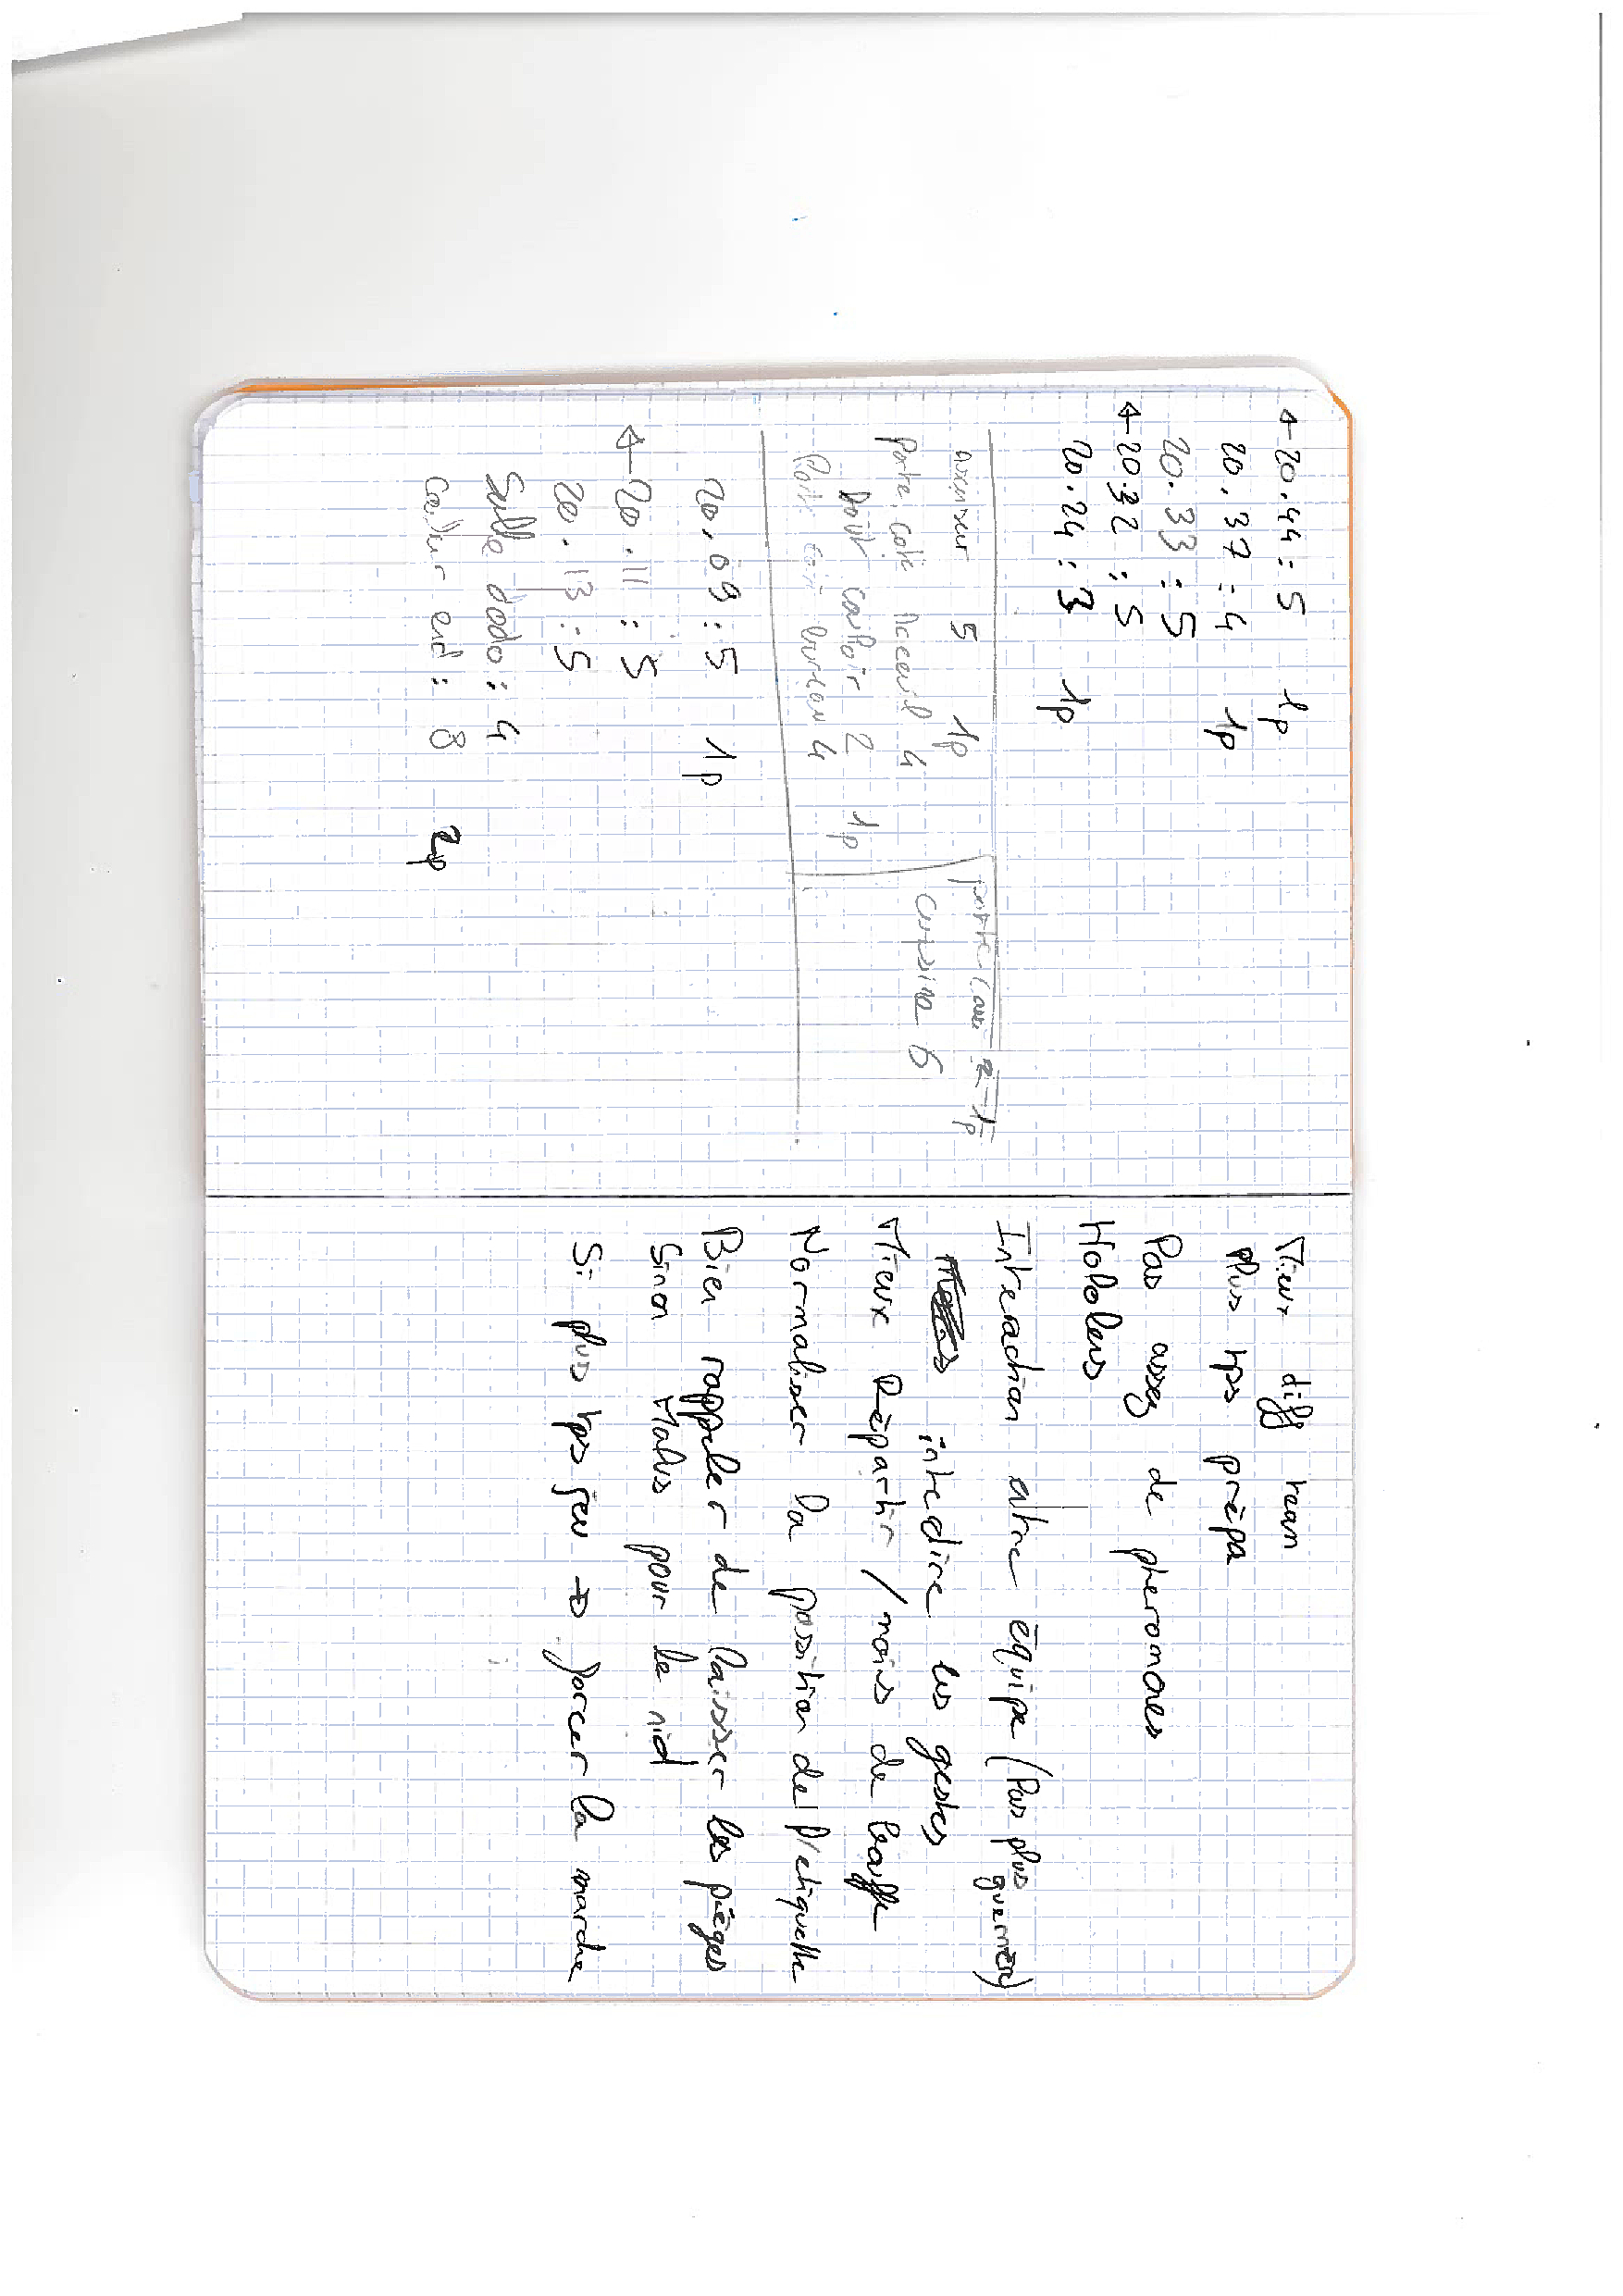 ← 20.44 : 5 1p
20.37 : 4 1p
20.33 : 5
← 20.32 : 5
20.24 : 3 1p
5 1p
Porte coté Acceuil 4
bout couloir 2 1p
Porte coté bureau 4
porte 2 1p
cuisine 6
20.09 : 5 1p
← 20.11 : 5
20.13 : 5
Salle dodo : 4
end : 8 2p
Mieux diff
Plus tps prépa
Pas assez de pheromones
Intreaction autre equipe (Pas plus
guerrière)
intedire les gestes
Mieux Répartir / moins de bouffe
Normaliser la position de l'etiquette
Bien rappeler de laisser les pièges
Sinon Malus pour le nid
Si plus tps jeu → forcer la marche